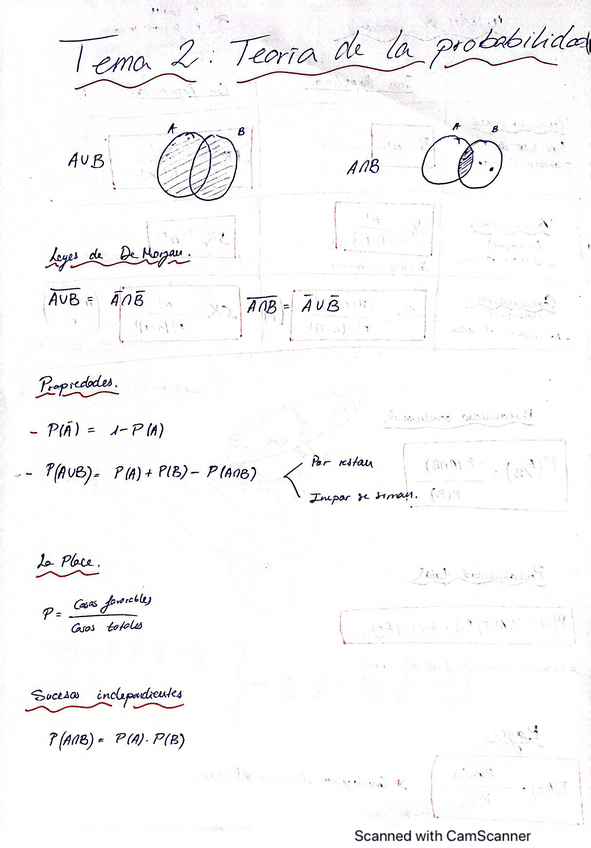 Tema 2: Teoría de la probabilidad
A B
A∪B
A B
A∩B
Leyes de De Morgan.
\overline{A∪B} = Ā∩B̄
\overline{A∩B} = Ā∪B̄
Propiedades.
- P(Ā) = 1-P(A)
- P(A∪B) = P(A) + P(B) - P(A∩B)
Par restan
Impar se suman.
La Place.
P = Casos favorables / Casos totales
Sucesos independientes
P(A∩B) = P(A) · P(B)
Scanned with CamScanner